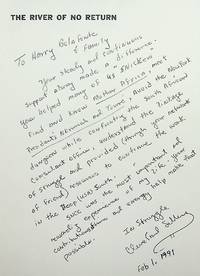 THE RIVER OF NO RETURN
To Harry Belafonte
& Family
Your steady and continuous
support along made a difference.
You helped many of us SNICKers
find and know Mother Africa, meet
Presidents Nkrumah and Toure, avoid the New York
dungeon while confronting the South African
Consulate officer, understand the linkage
of struggle and provided (through your network
of friends) resources to continue the work
in the Deep (USA) South.
SNCC was the most important and
rewarding experience of my life. Your
contributions and energy help make that
possible.
In Struggle,
Cleveland Sellers
Feb 1, 1991